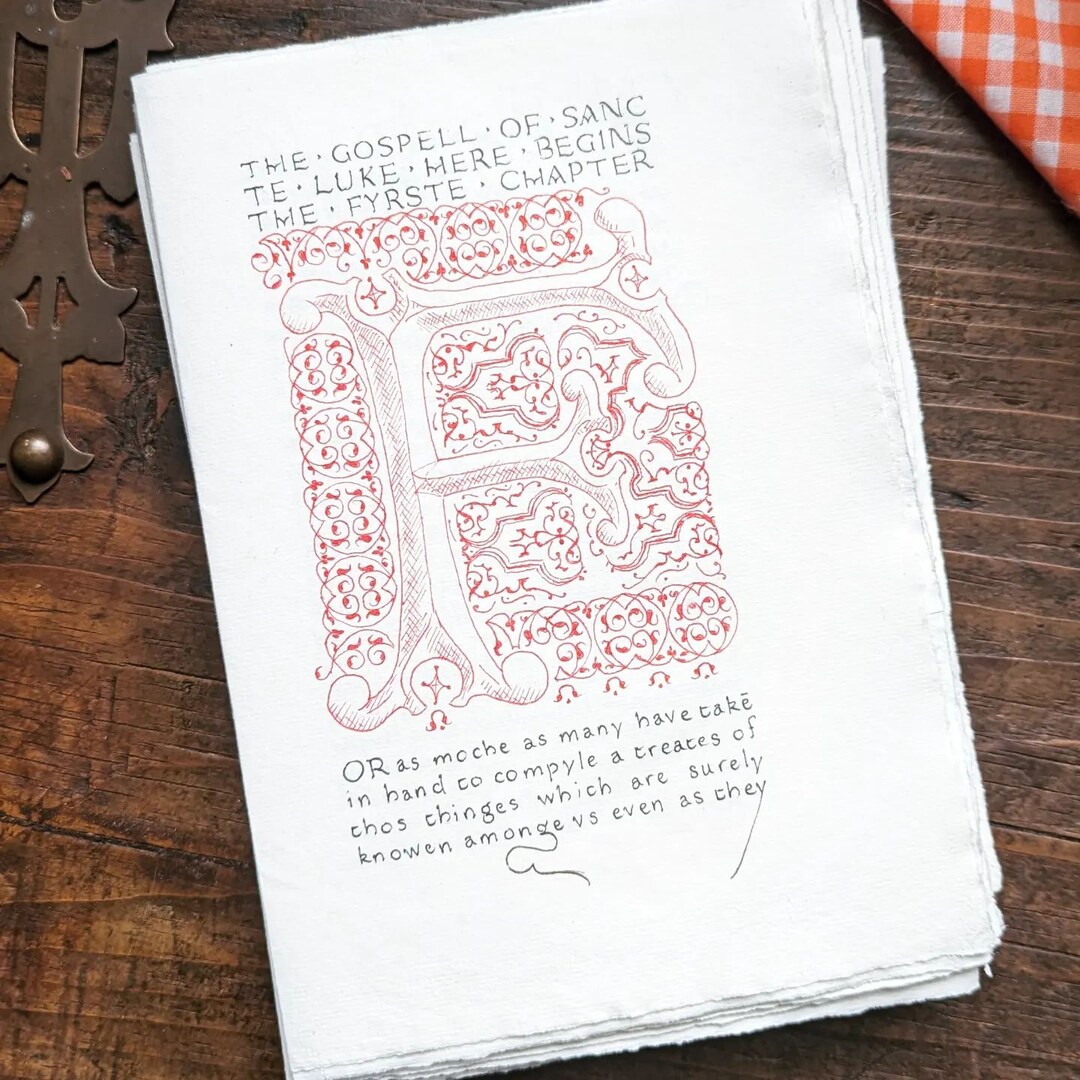 THE · GOSPELL · OF · SANC
TE · LUKE · HERE · BEGINS
THE · FYRSTE · CHAPTER
F
OR as moche as many have takē
in hand to compyle a treates of
thos thinges which are surely
knowen amonge vs even as they